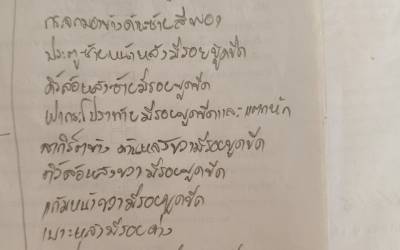 กระจกมองข้างด้านซ้ายสีพอง
ประตูซ้ายหน้าหลังมีรอยขูดขีด
คิ้วล้อหลังซ้ายมีรอยขูดขีด
ฝากระโปรงท้ายมีรอยขูดขีดและแตกหัก
สเกิร์ตข้าง ด้านหลังขวามีรอยขูดขีด
คิ้วล้อหลังขวามีรอยขูดขีด
แก้มหน้าขวามีรอยขูดขีด
เบาะหลังมีรอยด่าง